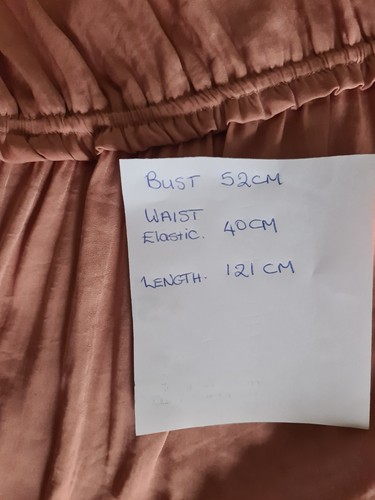 BUST 52CM
WAIST
Elastic. 40CM
LENGTH. 121CM